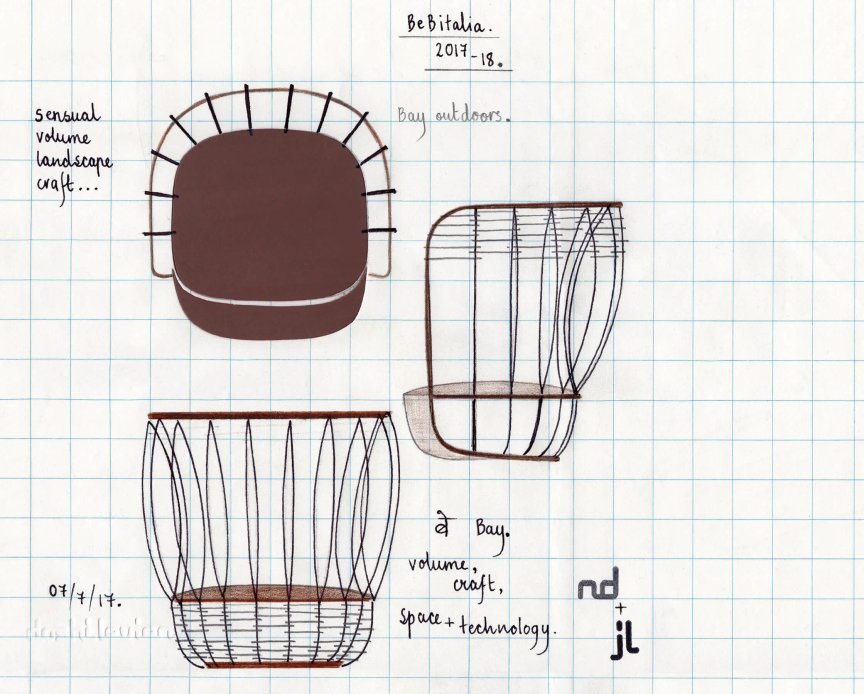 BeBitalia.
2017-18.
Bay outdoors.
sensual
volume
landscape
craft...
Bay.
volume,
craft,
space + technology.
07/7/17.
nd
+
jl